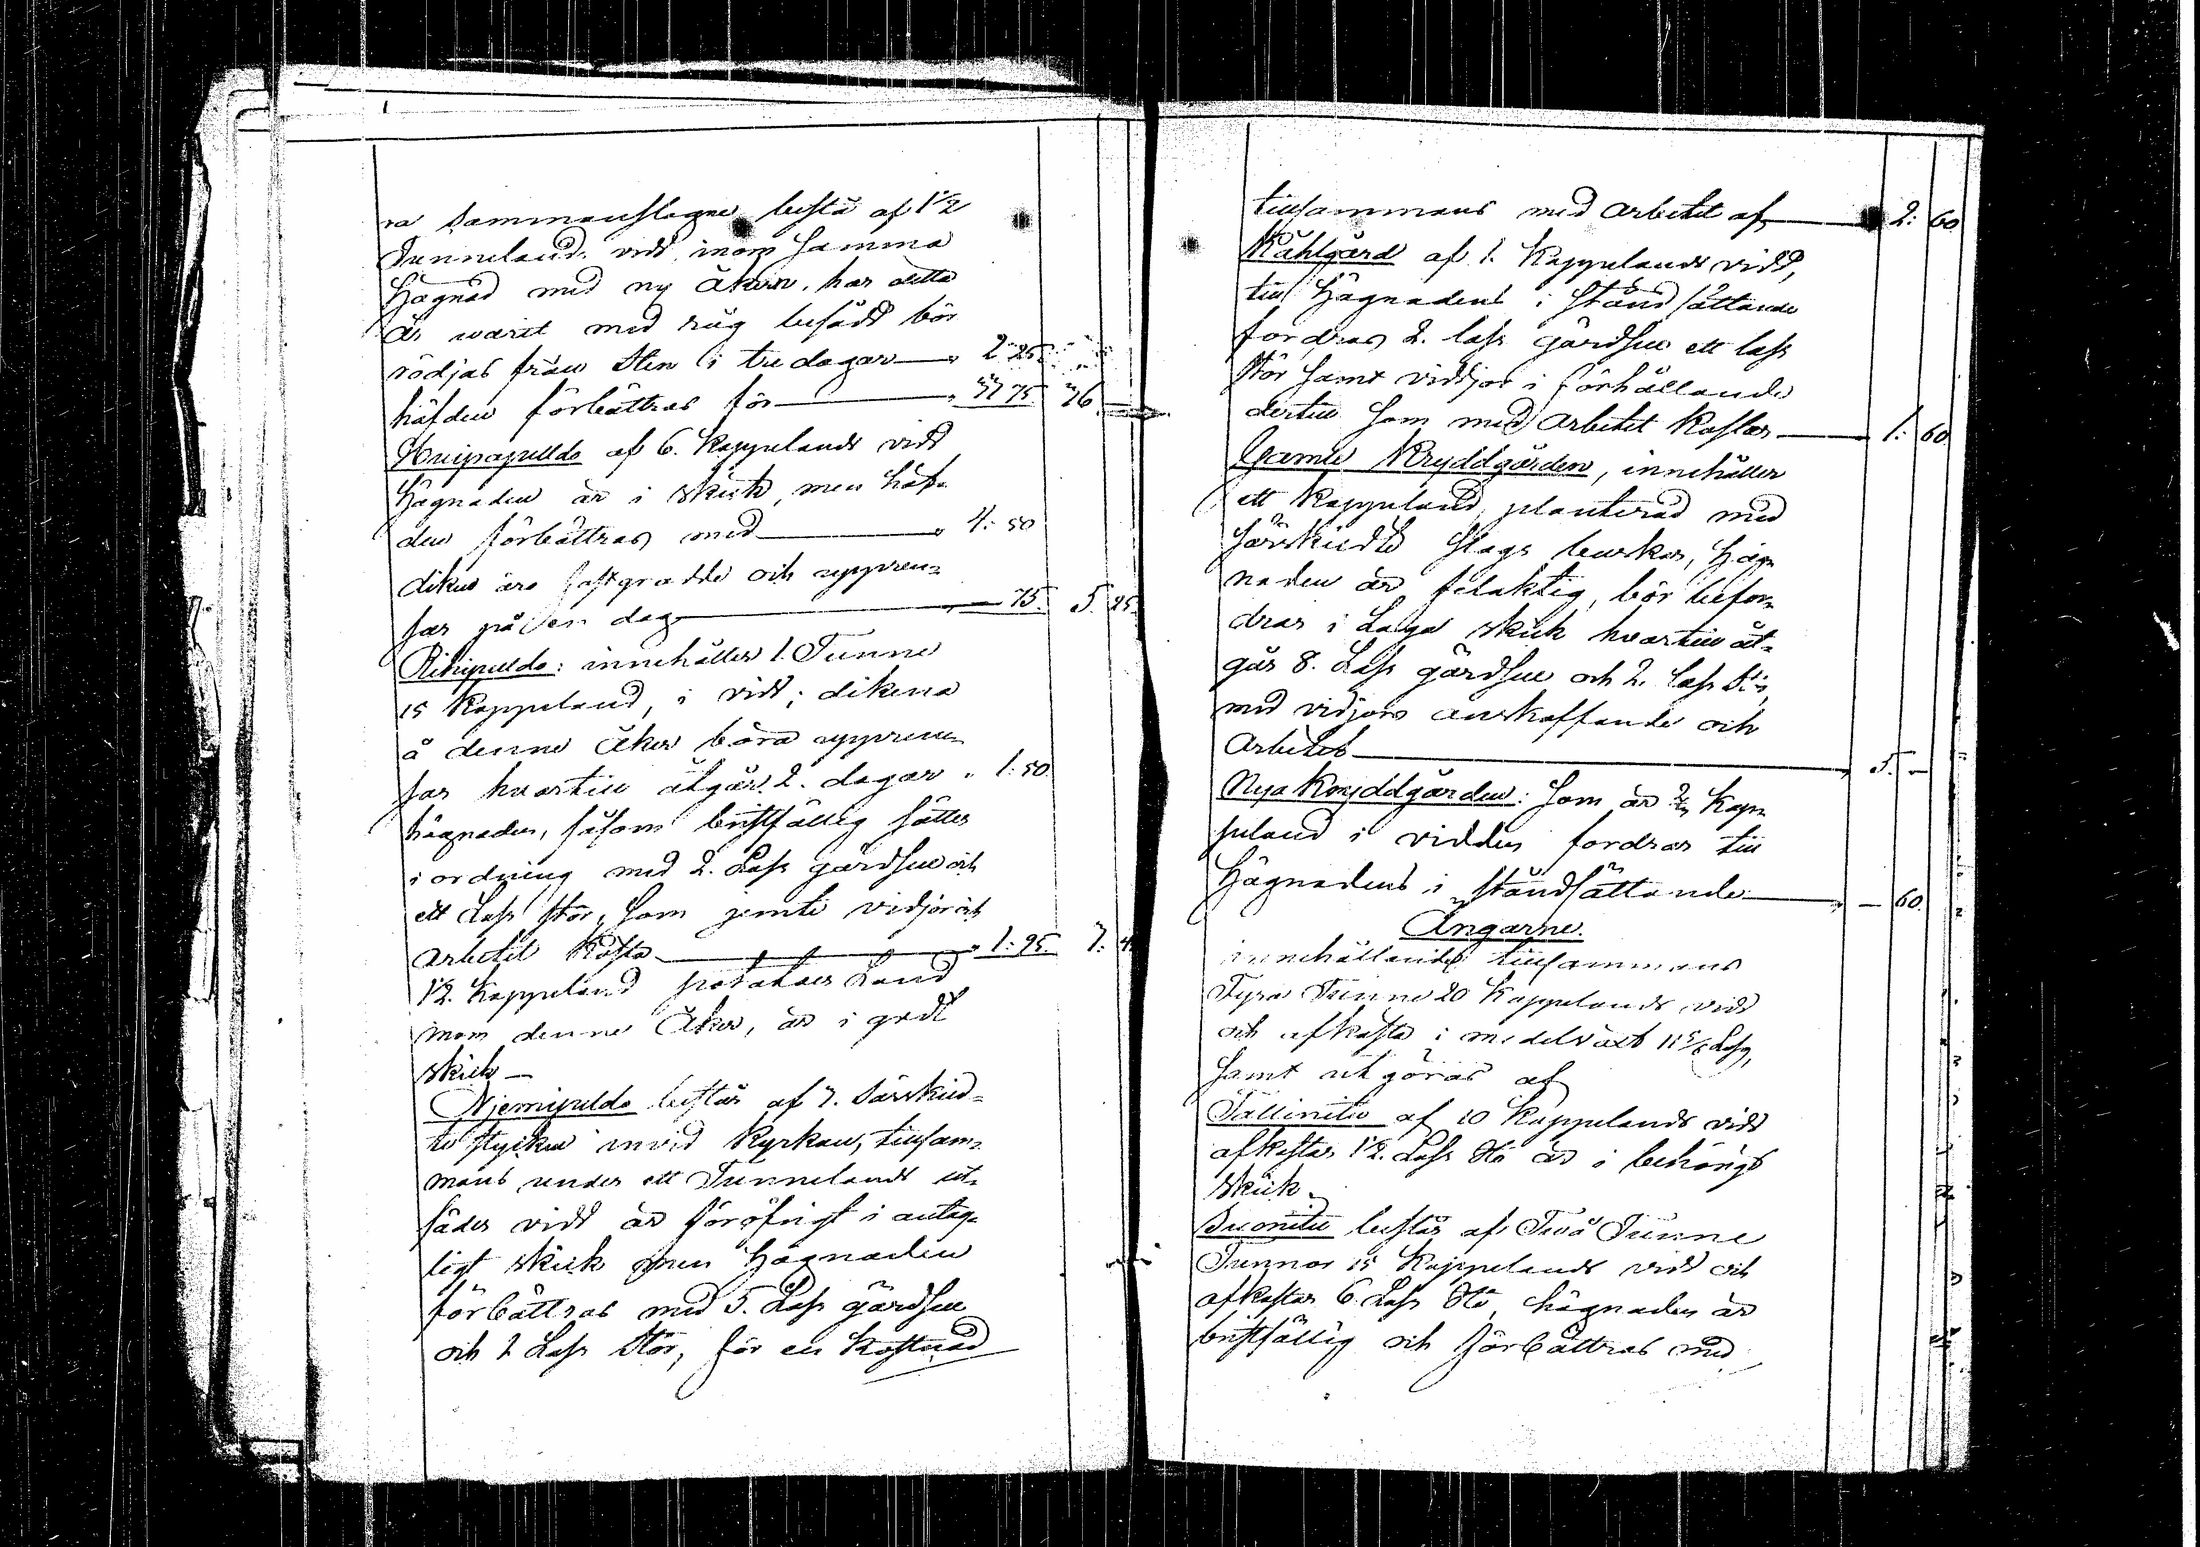 ra sammanslagne bestå af 1 1/2
Tunneland vidd inom samma
Hägnad med ny åker, har detta
år warit med råg besådt bör
rödjas från Sten i tre dagar — " 2 25.
häfden förbättras för — " 33 75. 36. —
Huipapeldo af 6. Kappelands vidd
Hägnaden är i skick, men häf-
den förbättras med — " 4: 50
diken äro fastgrodde och uppren-
sas på en dag — " 75. 5. 25.
Rihipeldo: innehåller 1. Tunne
15 Kappeland, i vidd; dikena
å denne Åker böra uppren-
sas hvartill åtgår 2. dagar " 1: 50.
hägnaden, såsom bristfällig sättes
i ordning med 2. Lass gärdsel och
ett Lass stör, som jemte vidjor och
arbetet kosta — " 1: 95. 3: 4
1 1/2. Kappeland potatoes Land
inom denne Åker, är i godt
skick —
Njemipeldo består af 7. särskild-
te stycken invid Kyrkan, tillsam-
mans under ett Tunnelands ut-
sädes vidd är föröfrigt i antag-
ligt skick men Hägnaden
förbättras med 5. Lass gärdsel
och 2 Lass Stör, för en kostnad
tillsammans med arbetet af — 2: 60
Kåhlgård af 1. Kappelands vidd,
till Hägnadens i stånd sättande
fordras 2. lass gärdsel ett lass
stör samt vidjor i förhållande
dertill som med arbetet kostar — 1: 60
Gamla Kryddgården, innehåller
ett Kappeland planterad med
särskildte slags buskar, Häg-
naden är felaktig, bör befor-
dras i Laga skick hvartill åt-
går 8. Lass gärdsel och 2. lass Stör,
med vidjors anskaffande och
Arbetet — 5. —
Nya Kryddgården: som är 2/3 Kap-
peland i vidden fordras till
Hägnadens i ståndsättande — — 60.
Ängarne.
innehållande tillsammans
Fyra Tunne 20 Kappelands vidd
och afkasta i medelväxt 11 5/6 Lass,
samt utgöras af
Tallinitu af 10 Kappelands vidd
afkastar 1 1/2. Lass Hö är i behörigt
skick.
Suonitu består af Två Tunne
Tunnor 15 Kappelands vidd och
afkastar 6 Lass Hö, hägnaden är
bristfällig och förbättras med